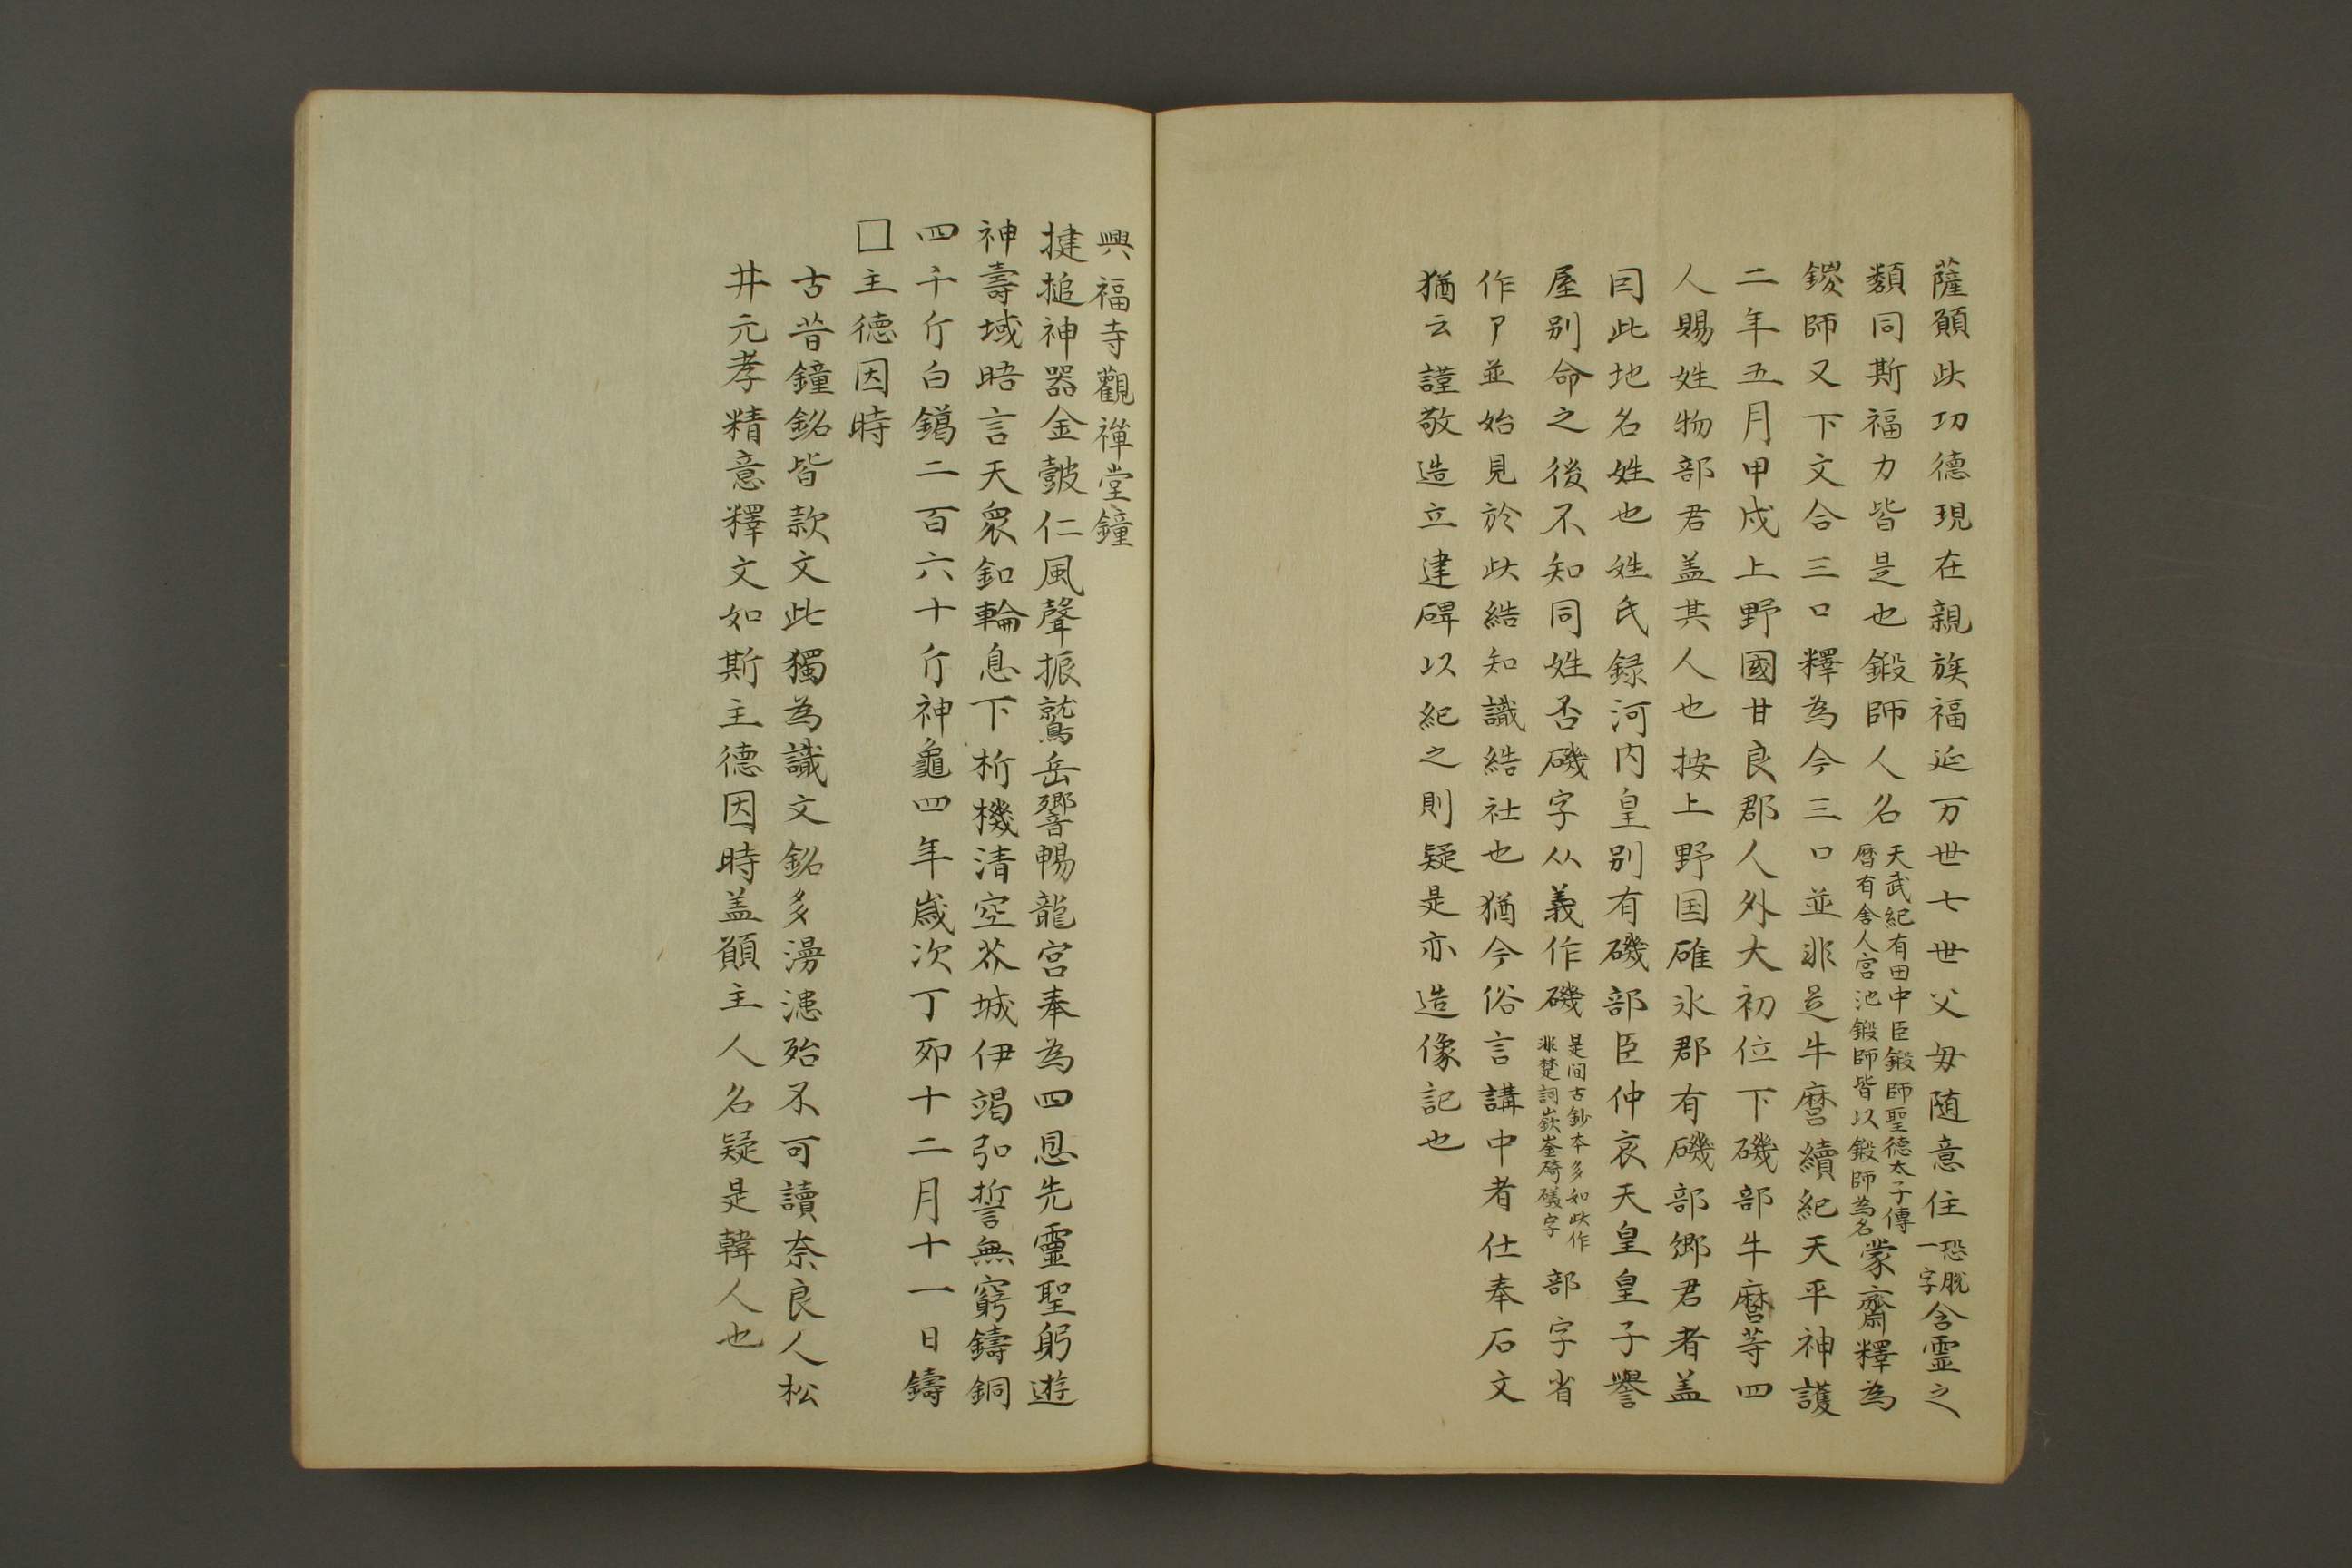 薩願此功德現在親族福延万世七世父毋随意住恐脫一字含霊之
類同斯福力皆是也鍛師人名天武紀有田中臣鍛師聖德太子傳曆有舍人宮池鍛師皆以鍛師為名蒙齋釋為
鍐師又下文合三口釋為今三口並非是牛麿續紀天平神護
二年五月甲戌上野國甘良郡人外大初位下磯部牛麿等四
人賜姓物部君盖其人也按上野国碓氷郡有磯部郷君者盖
囙此地名姓也姓氏録河内皇别有磯部臣仲哀天皇皇子譽
屋别命之後不知同姓否磯字从義作礒是间古鈔本多如此作非楚詞嶔崟碕礒字部字省
作卩並始見於此結知識結社也猶今俗言講中者仕奉石文
猶云謹敬造立建碑以紀之則疑是亦造像記也
興福寺觀禪堂鐘
揵搥神器金皷仁風聲振鷲岳響暢龍宮奉為四恩先靈聖躬遊
神壽域晤言天衆釦輪息下析機清空芥城伊竭弘誓無窮鑄銅
四千斤白鑞二百六十斤神龜四年歳次丁夘十二月十一日鑄
□主德因時
古昔鐘銘皆款文此獨為識文銘多漫漶殆不可讀奈良人松
井元孝精意釋文如斯主德因時盖願主人名疑是韓人也